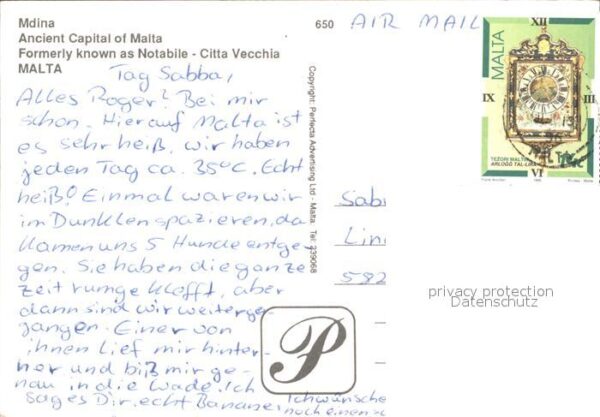 Mdina
Ancient Capital of Malta
Formerly known as Notabile - Citta Vecchia
MALTA
650
AIR MAIL
Tag Sabba,
Alles Roger? Bei mir
schon. Hier auf Malta ist
es sehr heiß, wir haben
jeden Tag ca. 35°C. Echt
heiß! Einmal waren wir
im Dunklen spazieren, da
kamen uns 5 Hunde entge-
gen. Sie haben die ganze
Zeit rumgekläfft, aber
dann sind wir weiterge-
gangen. Einer von
ihnen lief mir hinter-
her und biß mir ge-
nau in die Wade. Ich
sages Dir, echt Banane!
Ich wünsche
noch einen
Copyright: Perfecta Advertising Ltd - Malta. Tel: 239068
P
XII
MALTA
IX
III
TEŻORI MALTIN
ARLOĠĠ TAL-LIRA
VI
Sab
Lin
592
privacy protection
Datenschutz